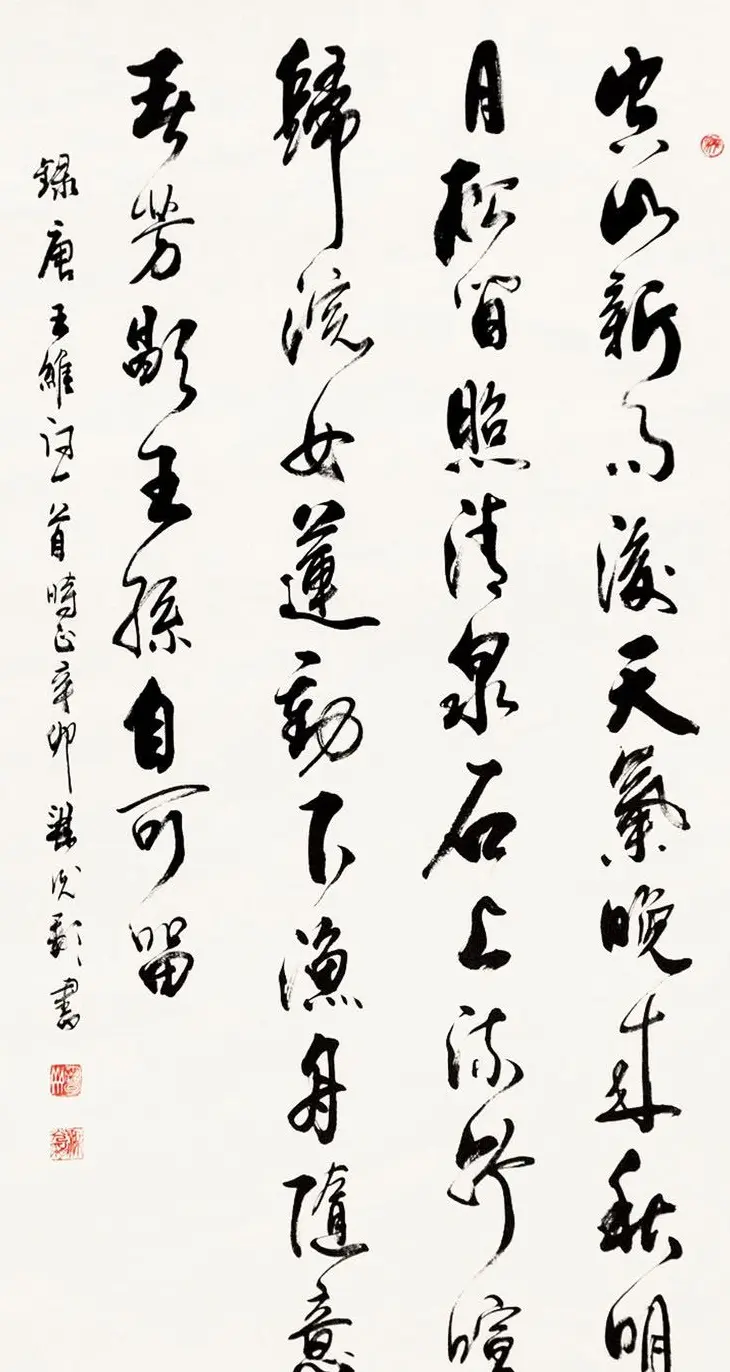 空山新雨後天氣晚來秋明
月松間照清泉石上流竹喧
歸浣女蓮動下漁舟隨意
春芳歇王孫自可留
錄唐王維詩一首時辛卯書